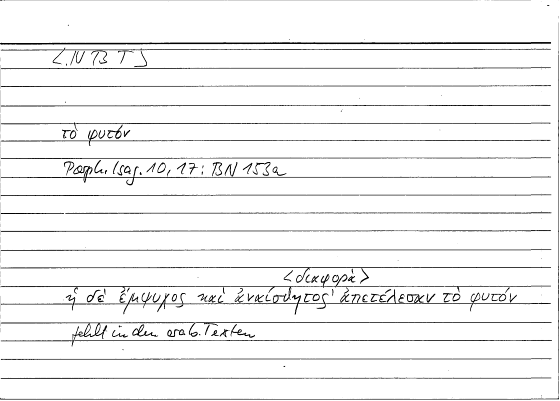 <.NBT>
τὸ φυτόν
Porph. Isag. 10, 17: BN 153a
<διαφορὰ>
ἡ δὲ ἔμψυχος καὶ ἀναίσθητος ἀπετέλεσαν τὸ φυτόν
fehlt in den arab. Texten